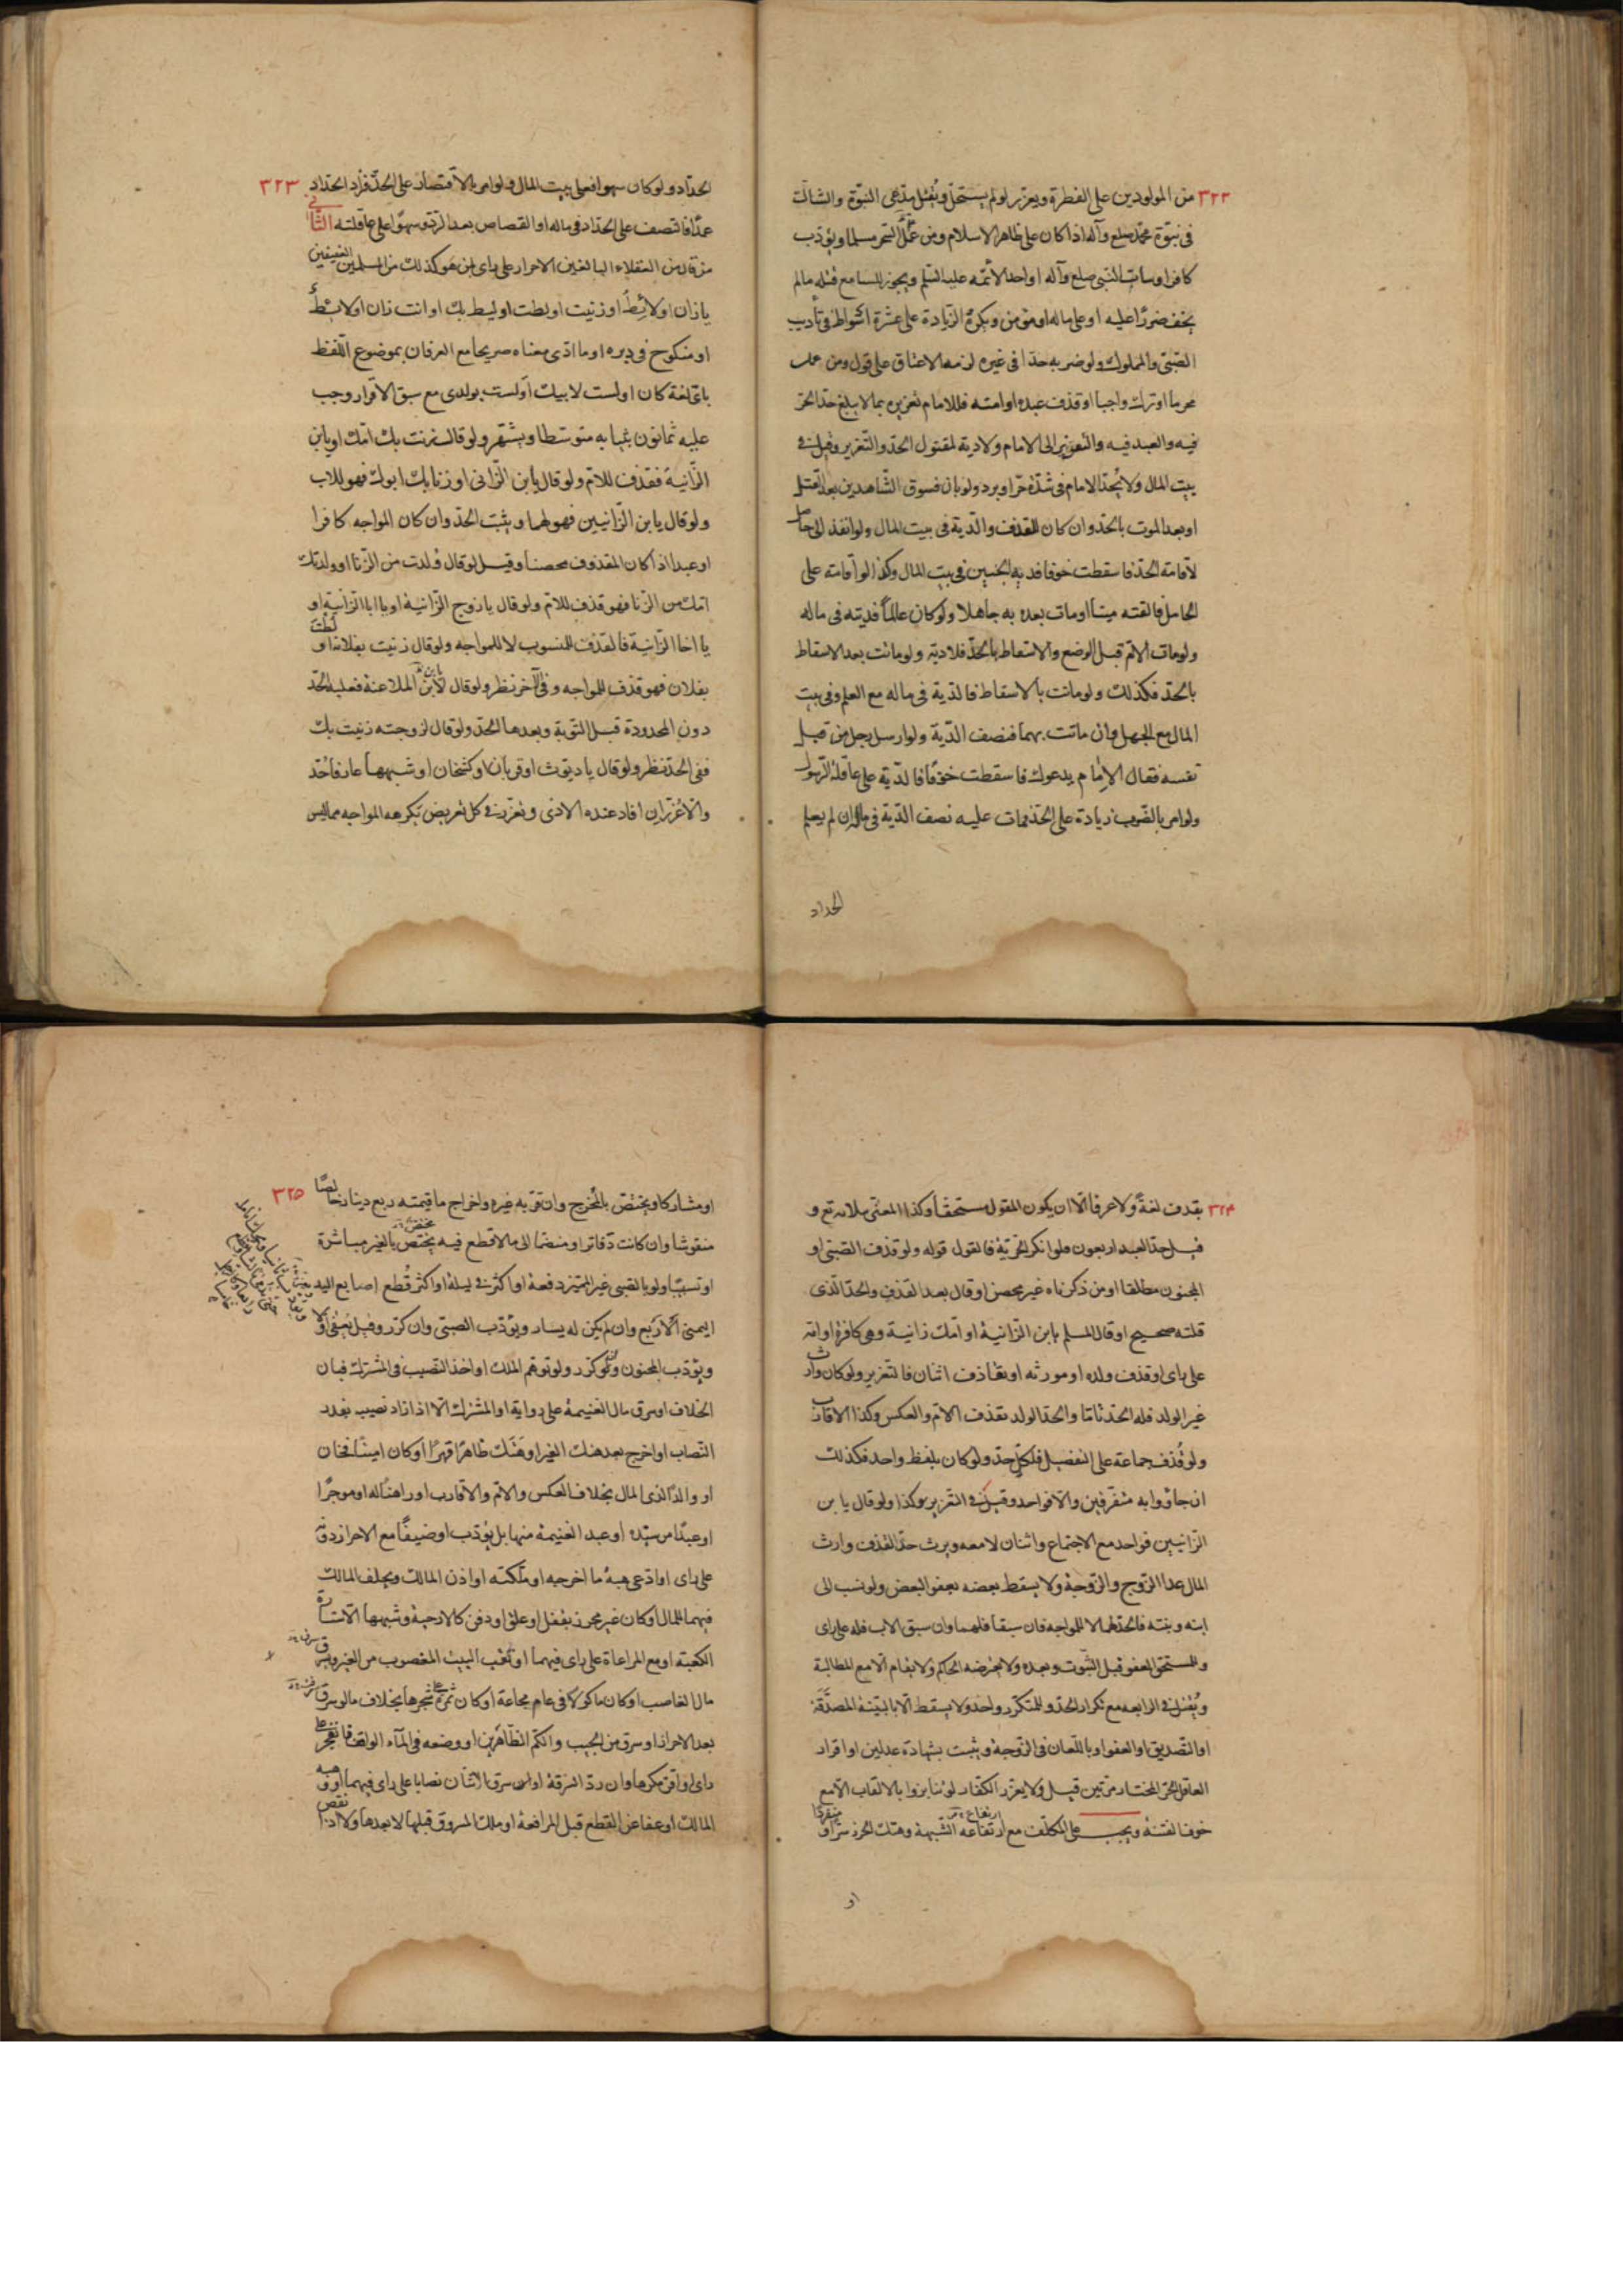 ٣٢٢
من المولودين على الفطرة ويعزر لو لم يستحل ويقتل مدعى النبوة والشاك
فى نبوة محمد صلعم وآله اذا كان على ظاهر الاسلام ومن عمل السحر مسلما ويؤدب
كافرا وساب النبى صلعم وآله او احد الأئمه عليه السلم ويجوز للسامع قتله مالم
يخف ضررا عليه او على ماله او مؤمن ويكره الزيادة على عشرة اسواط فى تأديب
الصبى والمملوك ولو ضربه حدا فى غيره لزمه الاعتاق على قول ومن عمل
محرما او ترك واجبا او قذف عبده او امته فللامام تعزيره بما لا يبلغ حد الحر
فيه والعبد فيه والتعزير الى الامام ولا دية لمقتول الحد والتعزير وقيل فى
بيت المال ولا يحد الامام فى شدة حر او برد ولو بان فسوق الشاهدين بعد القتل
او بعد الموت بالحد وان كان للقذف والدية فى بيت المال ولو انفذ الى حامل
لاقامة الحد فاسقطت خوفا فدية الجنين فى بيت المال وكذا لو اقامته على
الحامل فالقته ميتا او مات بعده به جاهلا ولو كان عالما فديته فى ماله
ولو ماتت الام قبل الوضع والاسقاط بالحد فلا دية ولو ماتت بعد الاسقاط
بالحد فكذلك ولو ماتت بالاسقاط فالدية فى ماله مع العلم وفى بيت
المال مع الجهل وان ماتت بهما فنصف الدية ولو ارسل رجل من قبل
نفسه فقال الامام يدعوك فاسقطت خوفا فالدية على عاقلة الرسول
ولو امر بالضرب زيادة على الحد فمات عليه نصف الدية فى ماله ان لم يعلم
الحداد
٣٢٣
الحداد ولو كان سهوا فعلى بيت المال ولو امر بالاقتصار على الحد فزاد الحداد
عمدا فالنصف على الحداد فى ماله او القصاص بعد الرد وسهوا على عاقلته الثانى
من قذف من العقلاء البالغين الاحرار على راى لمن هو كذلك من المسلمين العفيفين
يا زان او لائط او زنيت او لطت او ليط بك او انت زان او لائط
او منكوح فى دبره او ما ادى معناه صريحا مع العرفان بموضوع اللفظ
باى لغة كان او لست لابيك او لست بولدى مع سبق الاقرار وجب
عليه ثمانون بثيابه متوسطا ويشهر ولو قال زنت بك امك او يابن
الزانية فقذف للام ولو قال يابن الزانى او زنا بك ابوك فهو للاب
ولو قال يابن الزانيين فهو لهما ويثبت الحد وان كان المواجه كافرا
او عبدا اذا كان المقذوف محصنا وقيل لو قال ولدت من الزنا او ولدتك
امك من الزنا فهو قذف للام ولو قال يا زوج الزانية او يا ابا الزانية او
يا اخا الزانية فالقذف للمنسوب لا للمواجه ولو قال زنيت بفلانة او لطت
بفلان فهو قذف للمواجه وفى الآخر نظر ولو قال لابن الملاعنة فعليه الحد
دون المحدودة قبل التوبة وبعدها الحد ولو قال لزوجته زنيت بك
ففى الحد نظر ولو قال يا ديوث او قربان او كشخان او شبهها عارفا حد
والا عزر ان افاد عنده الاذى ويعزر فى كل تعريض يكرهه المواجه مما ليس
٣٢٤
بقذف لغة ولا عرفا الا ان يكون المقول مستحقا وكذا المعنى بملامة مع و
قيل حد العبد اربعون فلو انكر الحرية فالقول قوله ولو قذف الصبى او
المجنون مطلقا او من ذكرناه غير محصن او قال بعد القذف والحد الذى
قلته صحيح او قال المسلم يابن الزانية او امك زانية وهى كافرة او امة
على راى او قذف ولده او مورثه او تقاذف اثنان فالتعزير ولو كان وارث
غير الولد فله الحد تاما والحد الولد بقذف الام والعكس وكذا الاقارب
ولو قذف جماعة على التفصيل فلكل حد ولو كان بلفظ واحد فكذلك
ان جاؤوا به متفرقين والا فواحد وقيل فى التعزير وكذا ولو قال يا بن
الزانيين فواحد مع الاجتماع واثنان لا معه ويرث حد القذف وارث
المال عدا الزوج والزوجة ولا يسقط بعضه بعفو البعض ولو نسب الى
ابنه وبنته فالحد لهما لا للمواجه فان سبقا فلهما وان سبق الاب فله على راى
وللمستحق العفو قبل الثبوت وبعده ولا يعرضه الحاكم ولا يقام الا مع المطالبة
ويقتل فى الرابعه مع تكرار الحد وللمتكرر واحد ولا يسقط الا بالبينة المصدقة
او التصديق او العفو او باللعان فى الزوجة ويثبت بشهادة عدلين او اقرار
العاقل الحر المختار مرتين قيل ولا يعزر الكفار لو تنابزوا بالالقاب الا مع
خوف الفتنة ويجب على المكلف مع ارتفاعه الشبهة وهتك الحرز سرا و منفردا
او
٣٢٥
او مشاركا ويختص بالمخرج وان قربه غيره واخراج ما قيمته ربع دينار خالصا
منقوشا وان كانت دفاتر او منضما الى ما لا قطع فيه يختص بالغير مباشرة
او تسبيبا ولو بالصبى غير المميز دفعة او اكثر فى ليلة او اكثر قطع اصابع اليد
اليمنى الاربع وان لم يكن له يسار ويؤدب الصبى وان كرر وقيل يعفى اولا
ويؤدب المجنون ولو كرر ولو توهم الملك او اخذ النصيب فى المشترك فبان
الخلاف او سرق مال الغنيمة على رواية او المشترك الا اذا زاد نصيب بقدر
النصاب او اخرج بعد هتك الغير او هتك ظاهرا قهرا او كان امينا فخان
او والدا لذى المال بخلاف العكس والام والاقارب او راهنا له او موجرا
او عبدا من سيده او عبد الغنيمة منها بل يؤدب او ضيفا مع الاحراز دونه
على راى او ادعى هبة ما اخرجه او ملكته او اذن المالك ويحلف المالك
فيهما للمال او كان غير محرز بقفل او غلق او دفن كالارحية وشبهها الا ستارة
الكعبة او مع المراعاة على راى فيهما او نقب البيت المغصوب من الغير وسرق
مال الغاصب او كان ماكولا فى عام مجاعة او كان ثمرة على شجرها بخلاف ما لو سرق
بعد الاحراز او سرق من الجيب والكم الظاهرين او وضعه فى الماء الواقف فانفجر على
راى او اقر مكرها وان رد السرقة او لو سرق اثنان نصابا على راى فيهما او وهبه
المالك او عفا عن القطع قبل المرافعة او ملك المسروق قبلها لا بعدها ولا اذا نقص